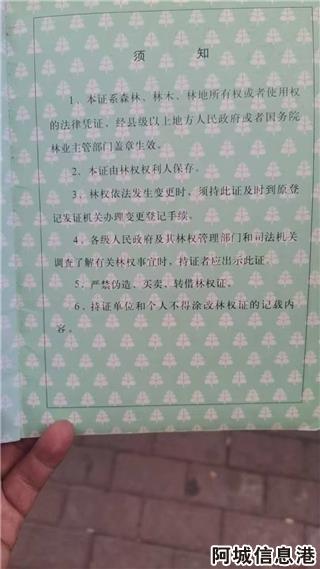 须 知
1、本证系森林、林木、林地所有权或者使用权
的法律凭证，经县级以上地方人民政府或者国务院
林业主管部门盖章生效。
2、本证由林权权利人保存。
3、林权依法发生变更时，须持此证及时到原登
记发证机关办理变更登记手续。
4、各级人民政府及其林权管理部门和司法机关
调查了解有关林权事宜时，持证者应出示此证。
5、严禁伪造、买卖、转借林权证。
6、持证单位和个人不得涂改林权证的记载内
容。
阿城信息港